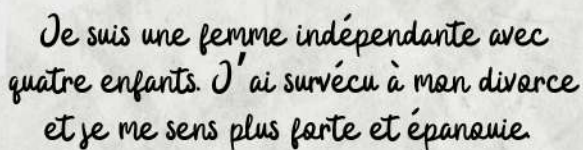 Je suis une femme indépendante avec
quatre enfants. J'ai survécu à mon divorce
et je me sens plus forte et épanouie.